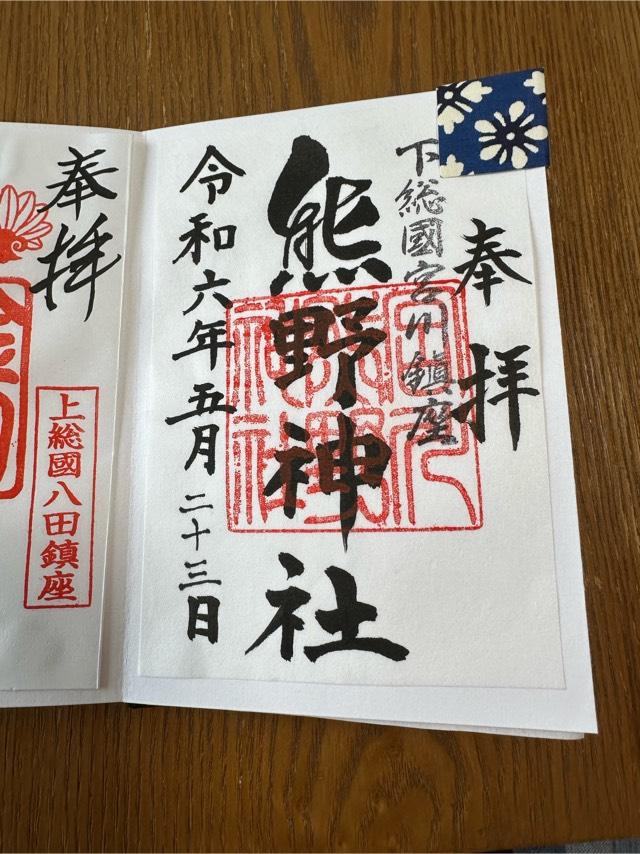 奉拝
下総國宮川鎮座
熊野神社
令和六年五月二十三日
奉拝
上総國八田鎮座